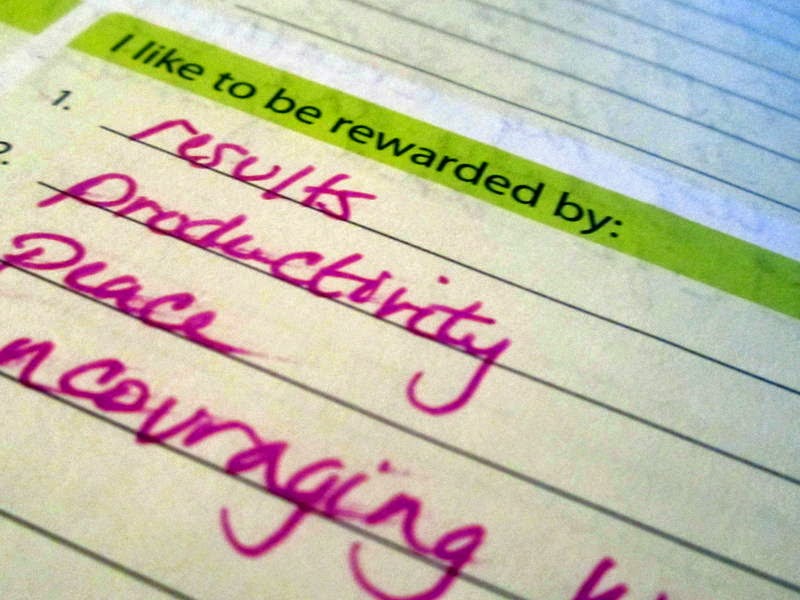 I like to be rewarded by:
1. results
2. productivity
Peace
ncouraging